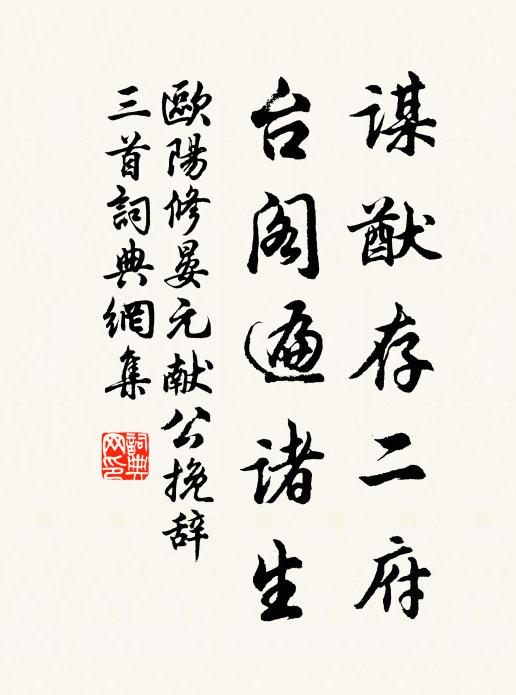 谋猷存二府
台阁遍诸生
歐陽修晏元献公挽辞
三首詞典網集
詞典網印